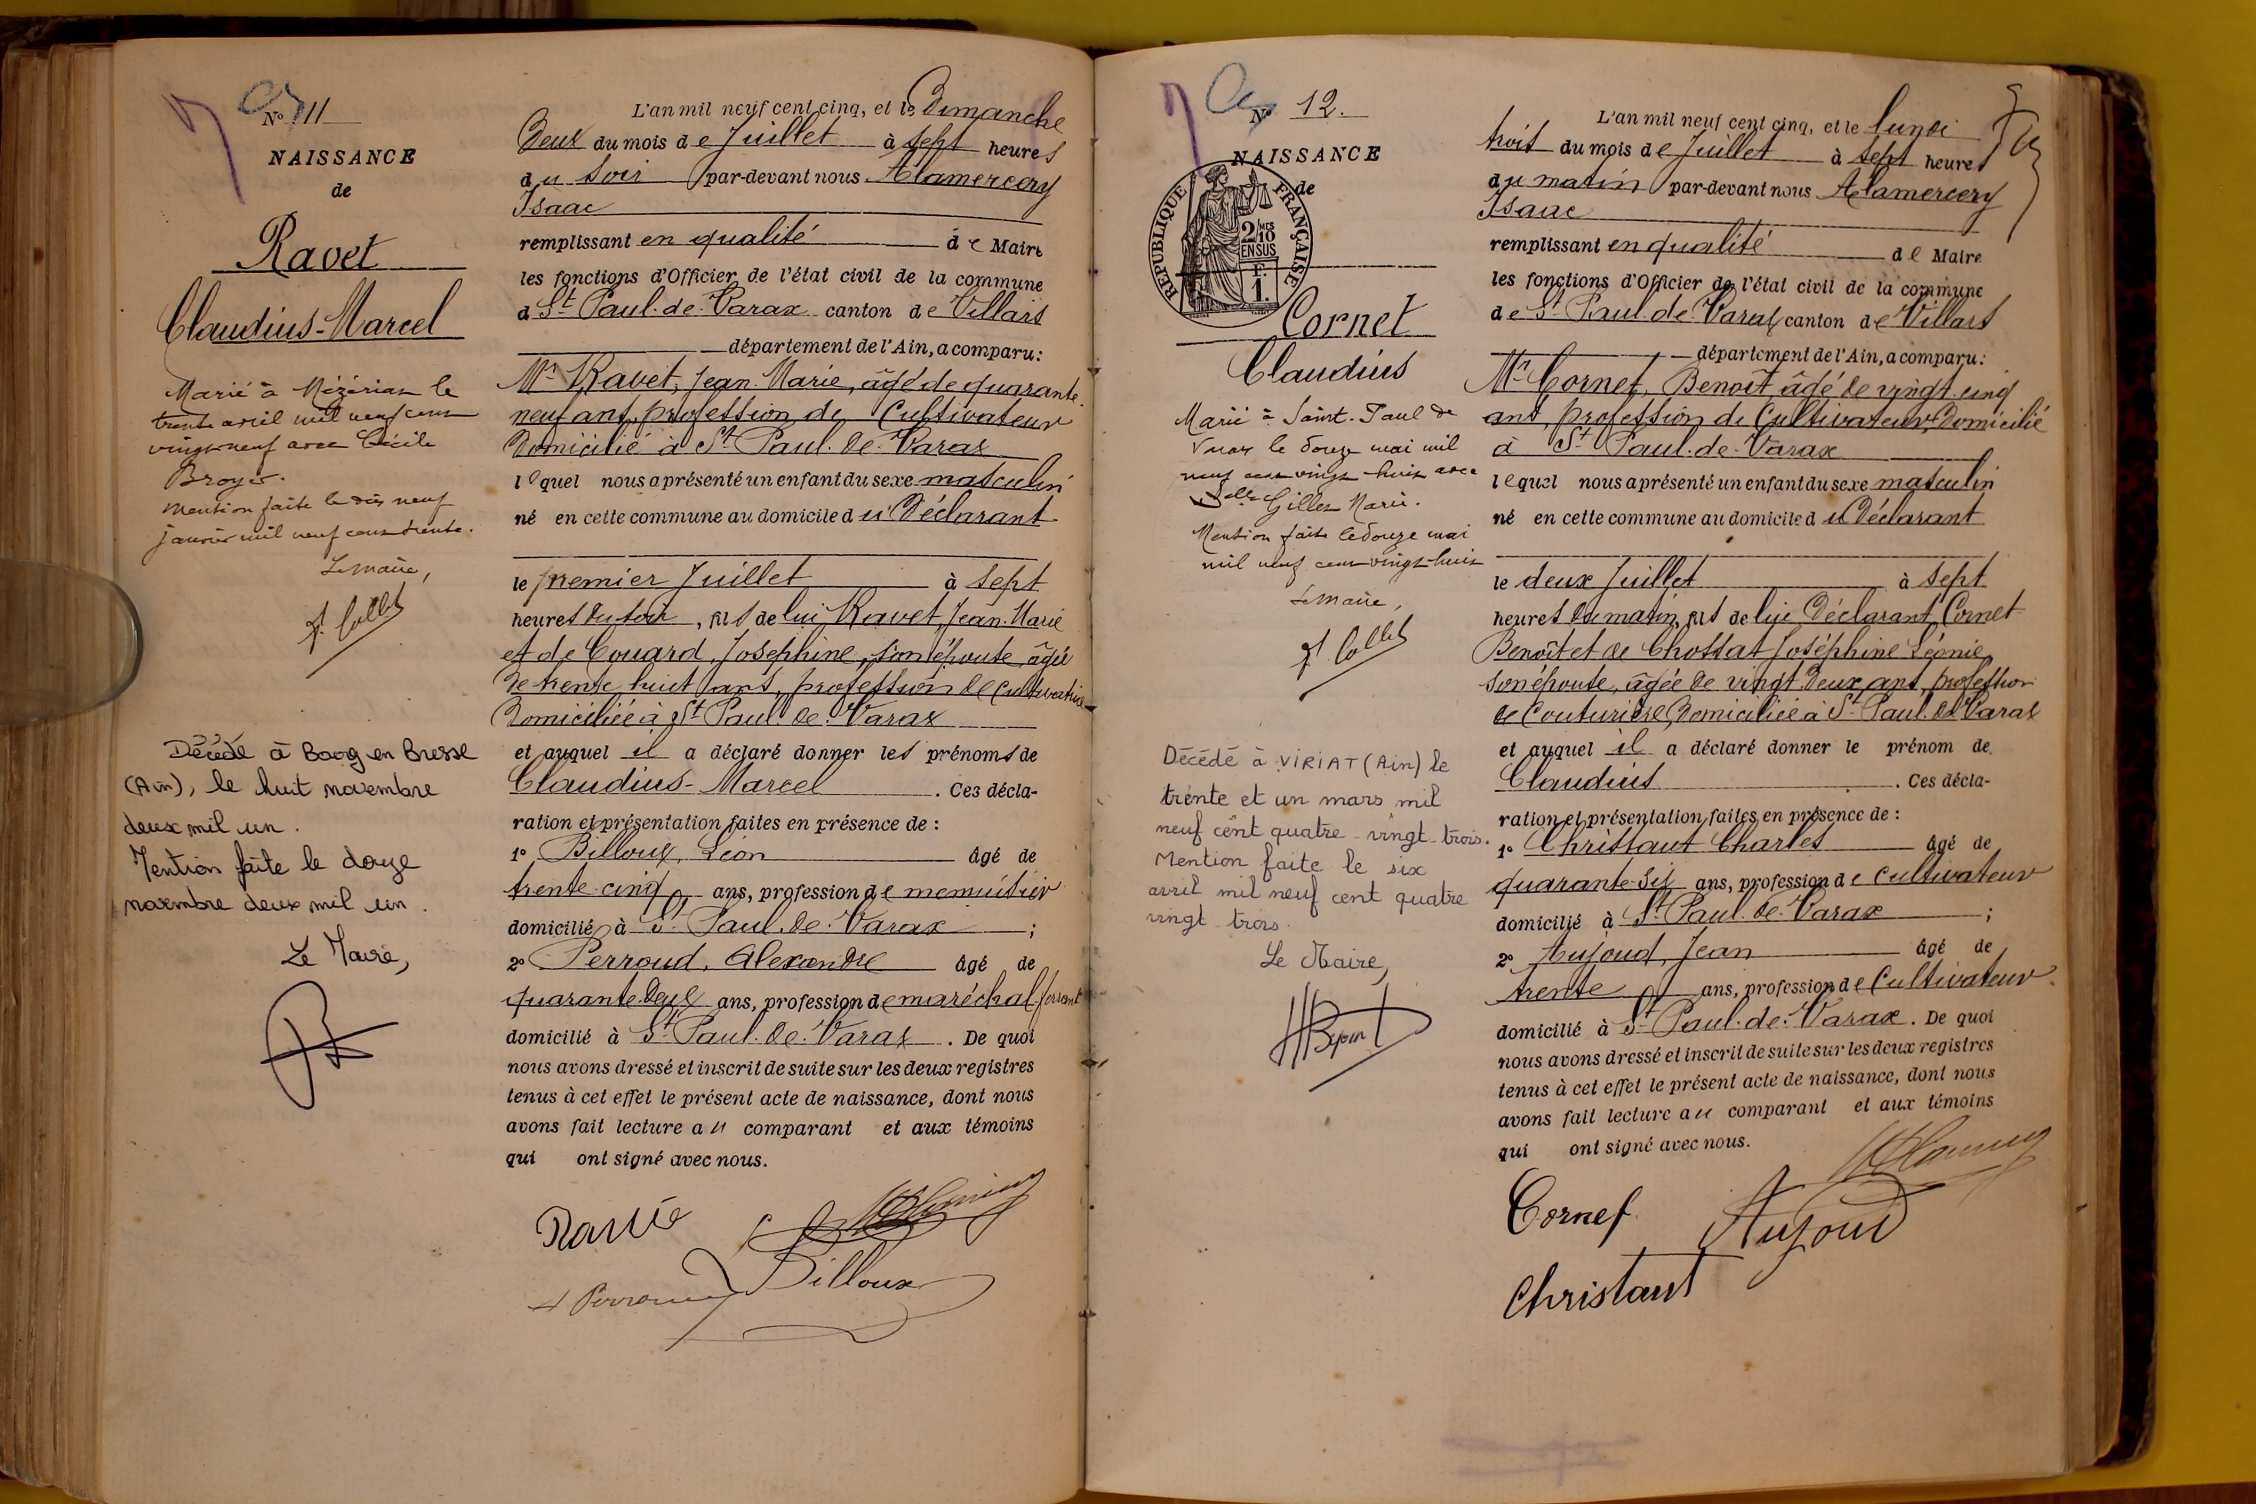 Nº 11
NAISSANCE
de
Ravet
Claudius-Marcel
Marié à Mézériat le
trente avril mil neuf cent
vingt-neuf avec Cécile
Broyer.
Mention faite le dix neuf
janvier mil neuf cent trente.
Le maire,
Décédé à Bourg en Bresse
(Ain), le huit novembre
deux mil un.
Mention faite le douze
novembre deux mil un.
Le Maire,
L'an mil neuf cent cinq, et le Dimanche
Deux du mois de Juillet à sept heures
du soir par-devant nous Alamercery
Isaac
remplissant en qualité de Maire
les fonctions d'Officier de l'état civil de la commune
d St Paul-de-Varax canton de Villars
département de l'Ain, a comparu:
Mr Ravet, Jean-Marie, âgé de quarante-
neuf ans, profession de Cultivateur
Domicilié à St Paul-de-Varax
lequel nous a présenté un enfant du sexe masculin
né en cette commune au domicile du Déclarant
le premier Juillet à sept
heures du soir, fils de lui Ravet, Jean-Marie
et de Couard, Joséphine, son épouse, âgée
de trente huit ans, profession de cultivatrice
Domiciliée à St Paul-de-Varax
et auquel il a déclaré donner les prénoms de
Claudius-Marcel. Ces décla-
ration et présentation faites en présence de :
1º Billoux, Léon âgé de
trente-cinq ans, profession de menuisier
domicilié à St Paul-de-Varax ;
2º Perroud, Alexandre âgé de
quarante-deux ans, profession de maréchal-ferrant
domicilié à St Paul-de-Varax. De quoi
nous avons dressé et inscrit de suite sur les deux registres
tenus à cet effet le présent acte de naissance, dont nous
avons fait lecture au comparant et aux témoins
qui ont signé avec nous.
Billoux
Nº 12.
NAISSANCE
de
RÉPUBLIQUE FRANÇAISE
2/10 MES
EN SUS
F.
1.
Cornet
Claudius
Marié à Saint-Paul de
Varax le douze mai mil
neuf cent vingt-huit avec
Delle Gillet Marie.
Mention faite le douze mai
mil neuf cent vingt-huit
Le maire,
Décédé à VIRIAT (Ain) le
trente et un mars mil
neuf cent quatre-vingt-trois.
Mention faite le six
avril mil neuf cent quatre
vingt trois.
Le Maire,
L'an mil neuf cent cinq, et le lundi
trois du mois de Juillet à sept heures
du matin par-devant nous Alamercery
Isaac
remplissant en qualité de Maire
les fonctions d'Officier de l'état civil de la commune
de St Paul-de-Varax canton de Villars
département de l'Ain, a comparu:
Mr Cornet, Benoît, âgé de vingt-cinq
ans, profession de Cultivateur, Domicilié
à St Paul-de-Varax
lequel nous a présenté un enfant du sexe masculin
né en cette commune au domicile du Déclarant
le deux Juillet à sept
heures du matin, fils de lui Déclarant Cornet
Benoît et de Chossat Joséphine Léonie,
son épouse, âgée de vingt-deux ans, profession
de Couturière, Domiciliée à St Paul-de-Varax
et auquel il a déclaré donner le prénom de
Claudius. Ces décla-
ration et présentation faites en présence de :
1º Christaut Charles âgé de
quarante-six ans, profession de cultivateur
domicilié à St Paul-de-Varax ;
2º Aujoud, Jean âgé de
trente ans, profession de Cultivateur
domicilié à St Paul-de-Varax. De quoi
nous avons dressé et inscrit de suite sur les deux registres
tenus à cet effet le présent acte de naissance, dont nous
avons fait lecture au comparant et aux témoins
qui ont signé avec nous.
Cornet Aujoud
Christaut